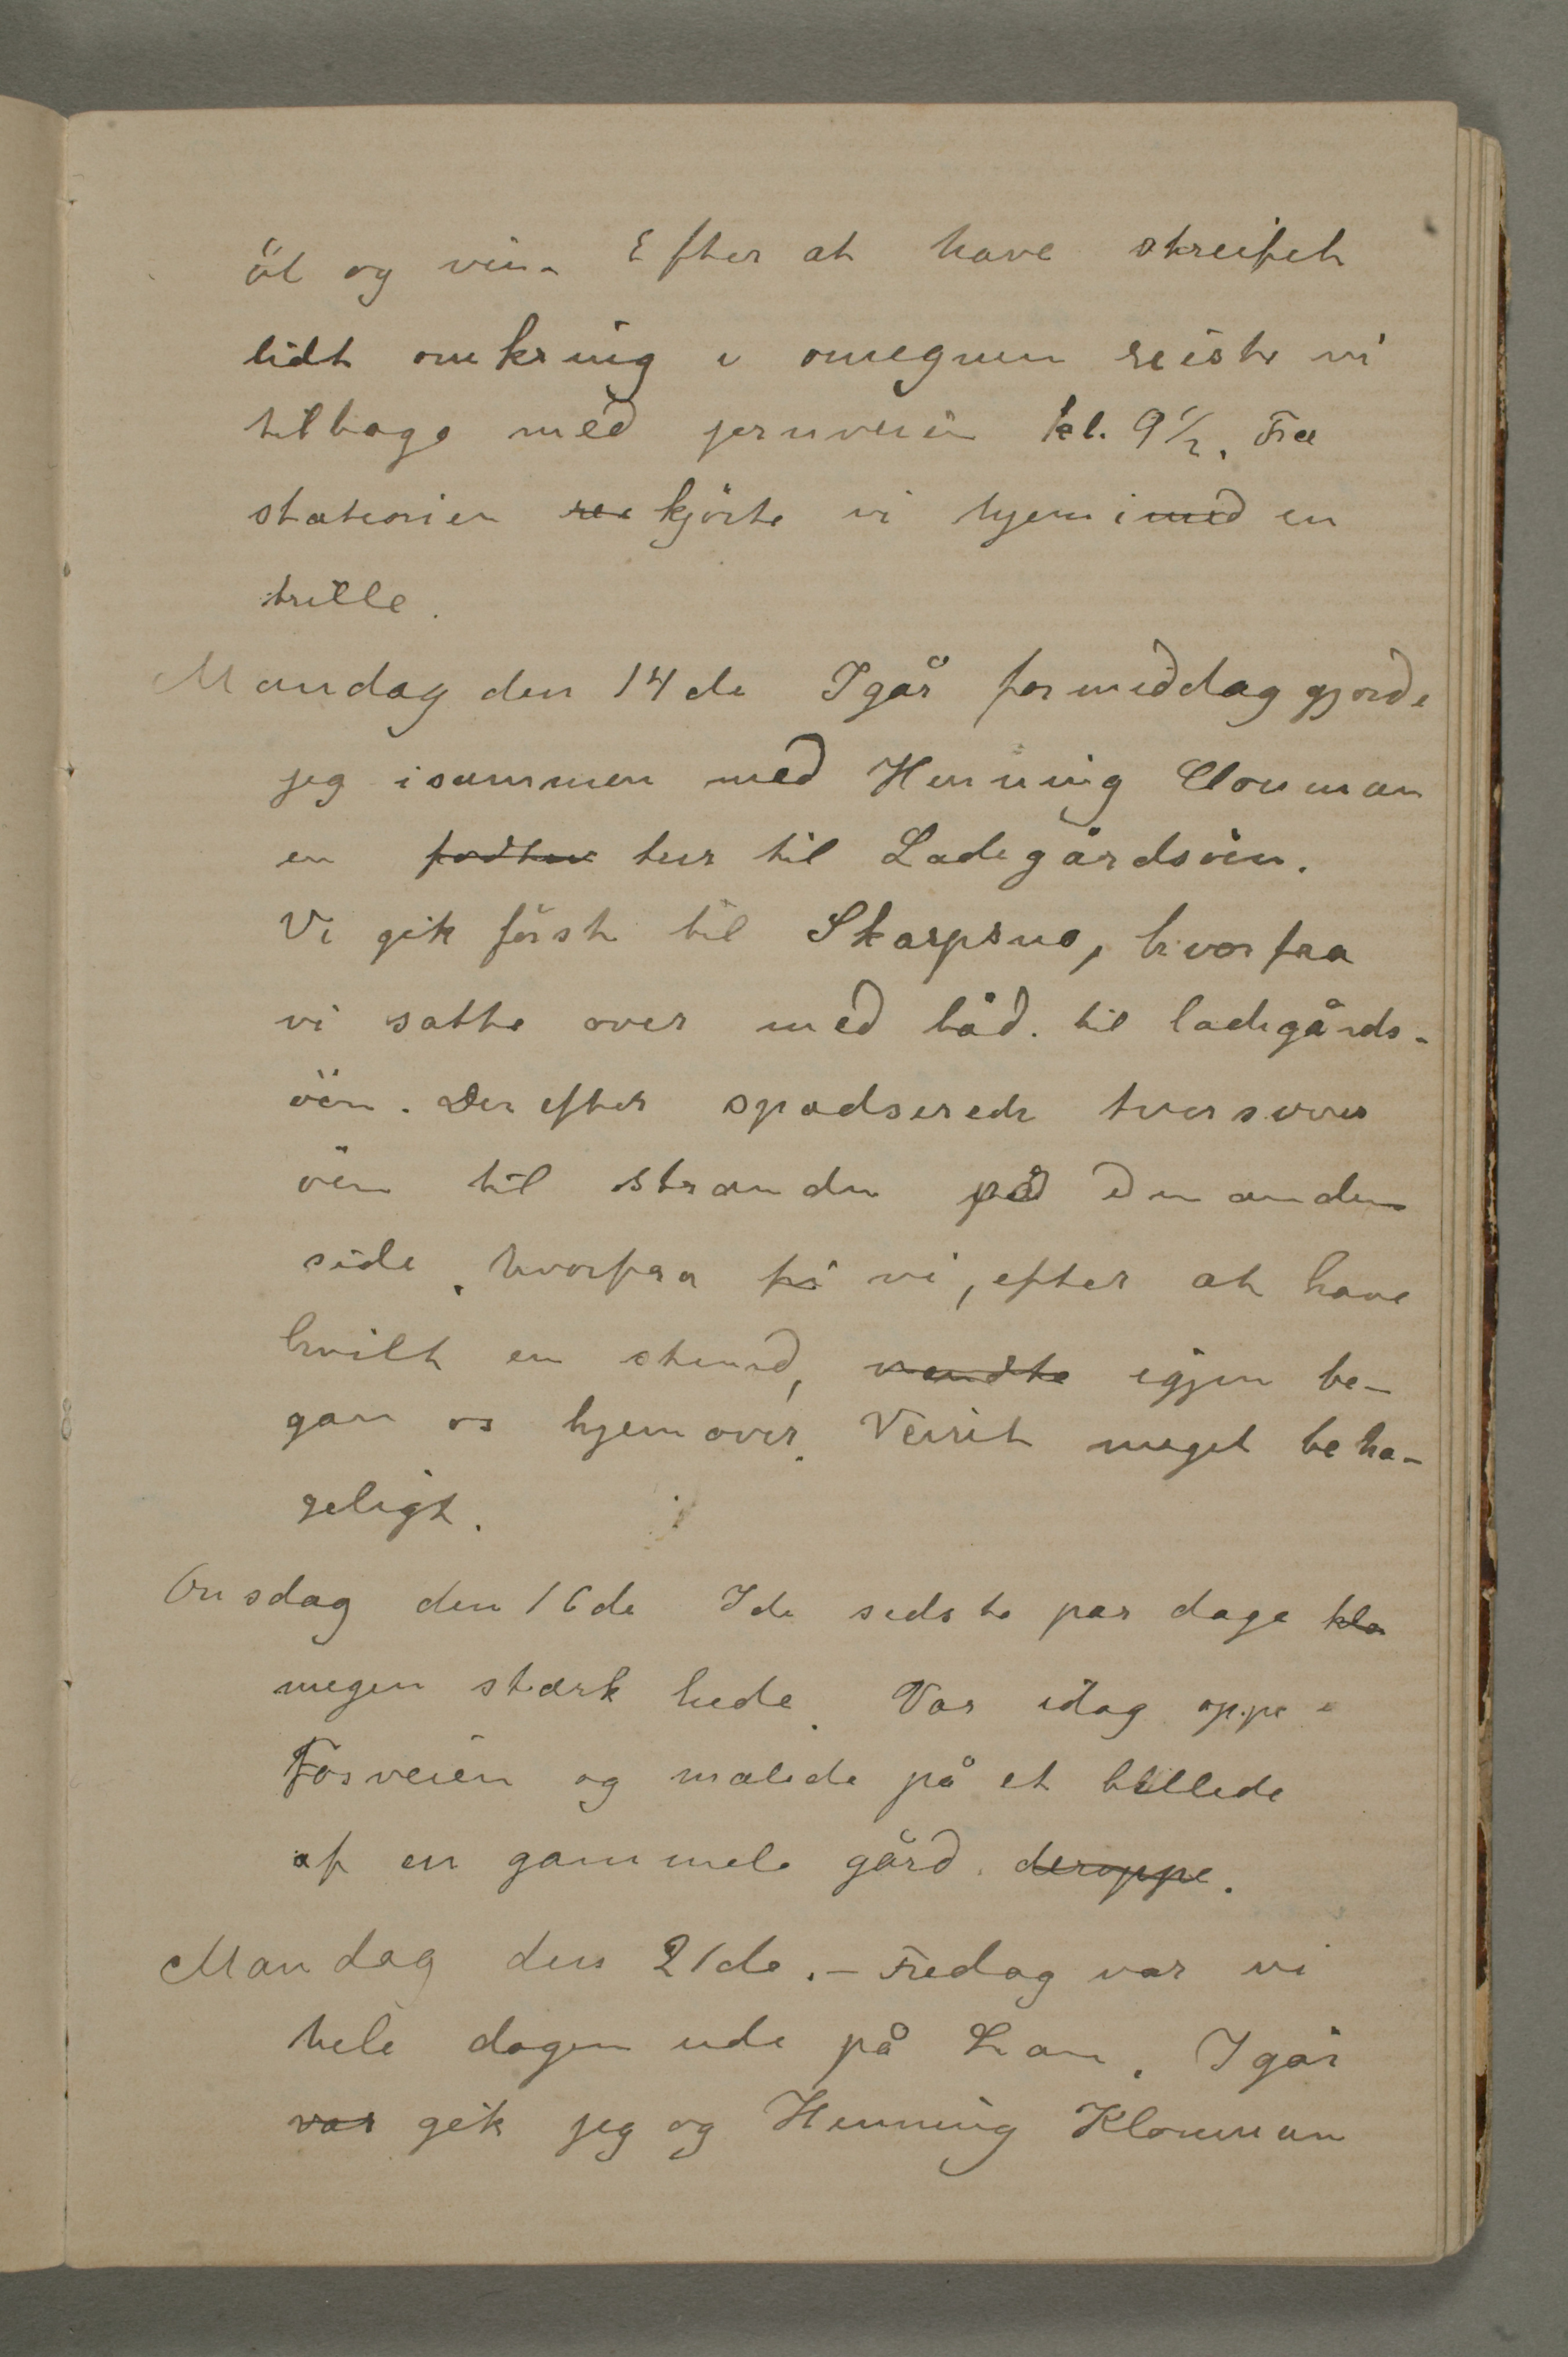 öl og vin. Efter at have streifet
lidt omkring i omegnen reiste vi
tilbage med jernveien kl. 9½. Fra
stationen kjörte vi hjem i med en
trille.
Mandag den 14de Igår formiddag gjorde
jeg isammen med Henning Clouman
en fodtur tur til Ladegårdsöen.
Vi gik först til Skarpsno, hvorfra
vi satte over med båd. til ladegårds-
öen. Derefter spadserede tversover
öen til stranden på den anden
side, hvorfra vi, efter at have
hvilt en stund, vendte igjen be-
gav os hjemover. Veiret meget beha-
geligt.
Onsdag den 16de I de sidste par dage kla
megen stærk hede. Var idag oppe i
Fosveien og malede på et billede
af en gammel gård. deroppe.
Mandag den 21de. – Fredag var vi
hele dagen ude på Lan. Igår
var gik jeg og Henning Klouman